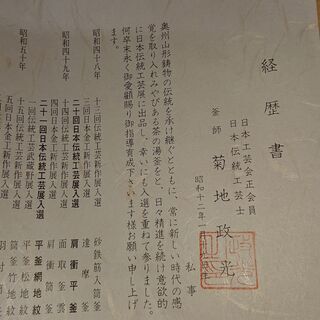 経歴書
日本工芸会正会員
日本伝統工芸士
釜師 菊地政光
昭和十二年一
私事
奥州山形鋳物の伝統を承け継ぐとともに、常に新しい時代の感
覚を取り入れみやびある茶の湯釜をと、日々精進を続け意欲的
に日本伝統工芸展に出品し、幸いにも入選を重ねて参りました。
何卒末永く御愛顧賜り御指導育成下さいます様お願い申し上げ
ます。
昭和四十八年 十三回伝統工芸新作展入選 砂鉄筋入筒釜
三回日本金工新作展入選 達磨釜
二十回日本伝統工芸展入選 肩衝平釜
昭和四十九年 十四回伝統工芸新作展入選 面取釜
四回日本金工新作展入選 肩衝筒釜
二十一回日本伝統工芸展入選 平釜網地紋
昭和五十年 一回伝統工芸武蔵野展入選 平釜松地紋
十五回伝統工芸新作展入選 筒釜竹地紋
五回日本金工新作展入選